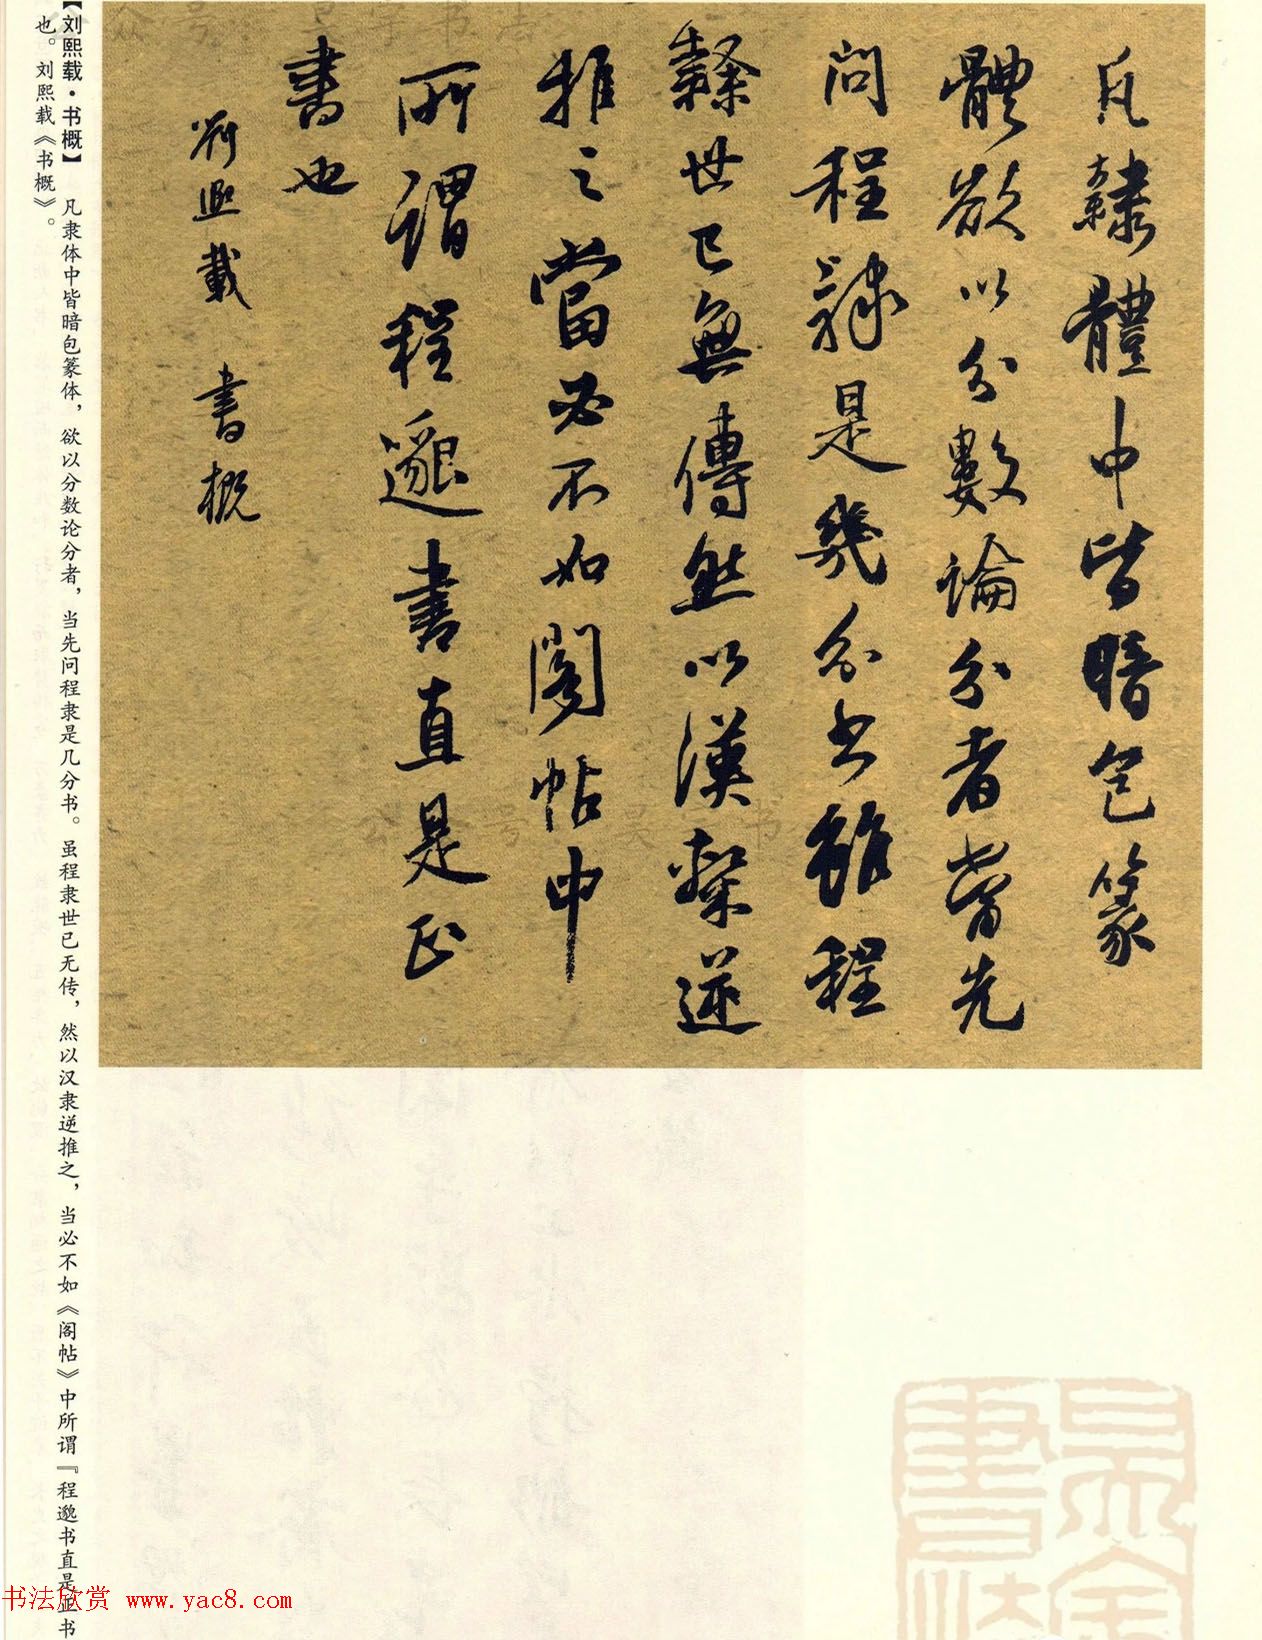 凡隸體中皆暗包篆
體欲以分數論分者當先
問程隸是幾分书雖程
隸世已無傳然以漢隸逆
推之當必不如閣帖中
所謂程邈書直是正
書也
劉熙載 書概
【刘熙载·书概】 凡隶体中皆暗包篆体，欲以分数论分者，当先问程隶是几分书。虽程隶世已无传，然以汉隶逆推之，当必不如《阁帖》中所谓『程邈书直是正书
也。刘熙载《书概》。
书法欣赏 www.yac8.com